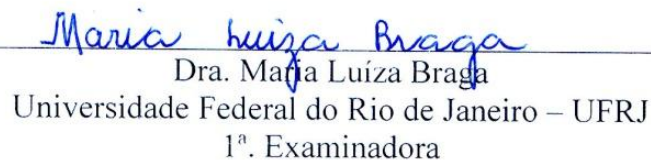 Maria Luiza Braga
Dra. Maria Luíza Braga
Universidade Federal do Rio de Janeiro – UFRJ
1ª. Examinadora